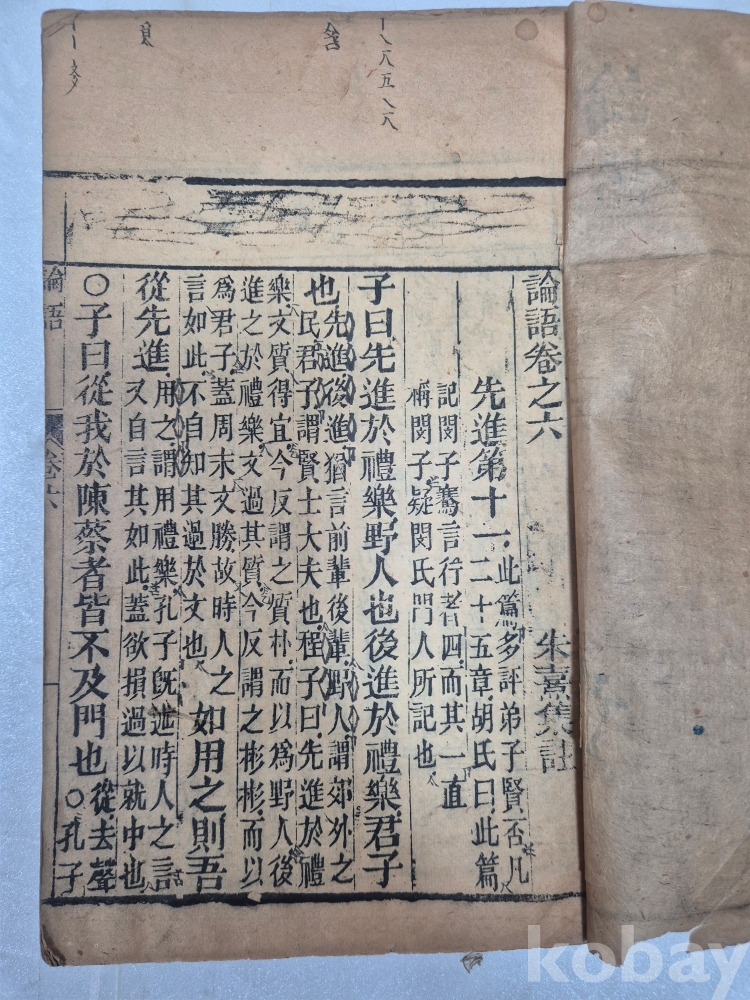 論語卷之六
朱熹集註
先進第十一
此篇多評弟子賢否凡
二十五章胡氏曰此篇
記閔子騫言行者四而其一直
稱閔子疑閔氏門人所記也
子曰先進於禮樂野人也後進於禮樂君子
也
先進後進猶言前輩後輩野人謂郊外之
民君子謂賢士大夫也程子曰先進於禮
樂文質得宜今反謂之質朴而以爲野人後
進之於禮樂文過其質今反謂之彬彬而以
爲君子蓋周末文勝故時人之
言如此不自知其過於文也
如用之則吾
從先進
用之謂用禮樂孔子旣述時人之言
又自言其如此蓋欲損過以就中也
○子曰從我於陳蔡者皆不及門也
從去聲
○孔子
論語
卷六
kobay